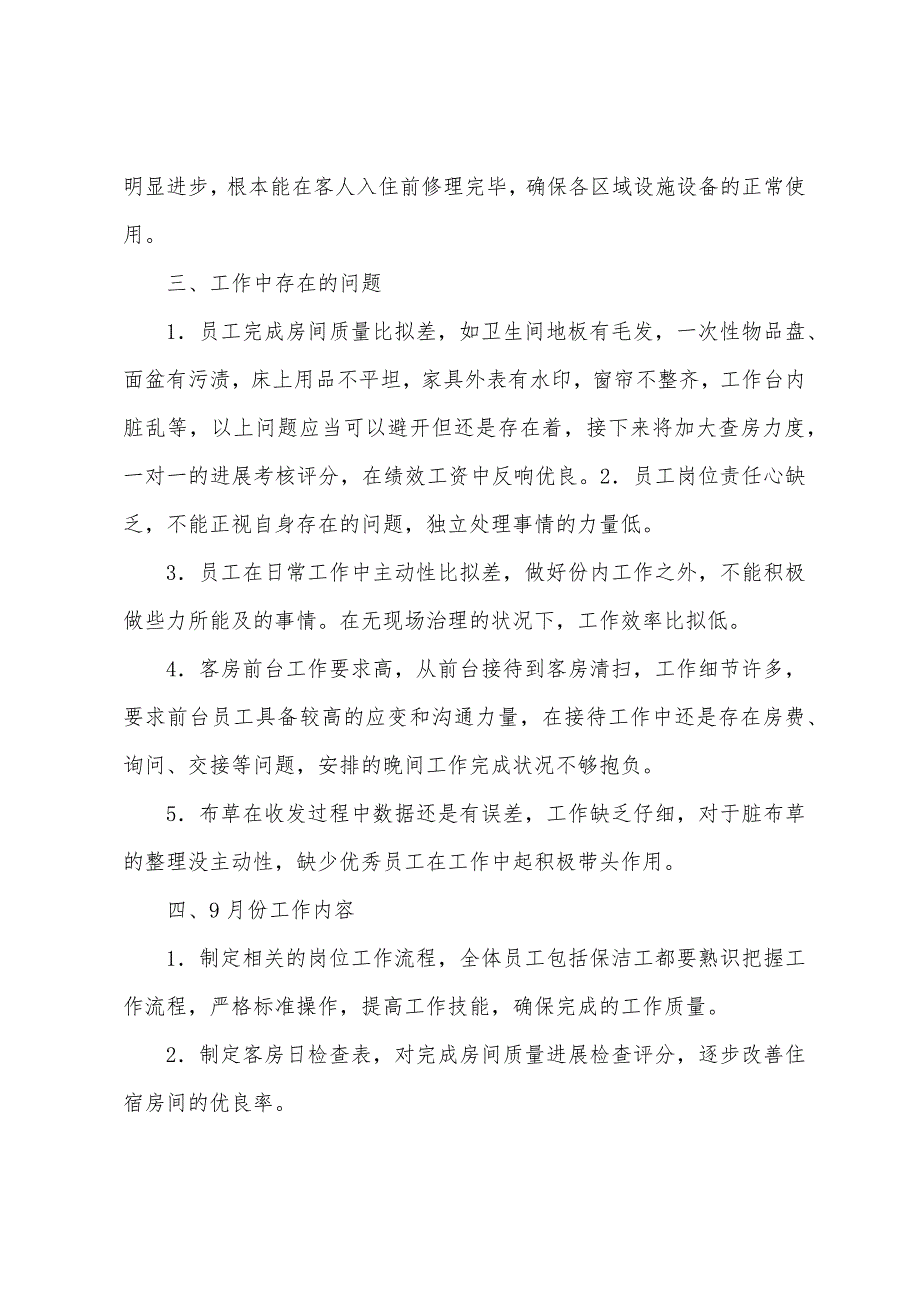 明显进步，根本能在客人入住前修理完毕，确保各区域设施设备的正常使
用。
三、工作中存在的问题
1．员工完成房间质量比拟差，如卫生间地板有毛发，一次性物品盘、
面盆有污渍，床上用品不平坦，家具外表有水印，窗帘不整齐，工作台内
脏乱等，以上问题应当可以避开但还是存在着，接下来将加大查房力度，
一对一的进展考核评分，在绩效工资中反响优良。2．员工岗位责任心缺
乏，不能正视自身存在的问题，独立处理事情的力量低。
3．员工在日常工作中主动性比拟差，做好份内工作之外，不能积极
做些力所能及的事情。在无现场治理的状况下，工作效率比拟低。
4．客房前台工作要求高，从前台接待到客房清扫，工作细节许多，
要求前台员工具备较高的应变和沟通力量，在接待工作中还是存在房费、
询问、交接等问题，安排的晚间工作完成状况不够抱负。
5．布草在收发过程中数据还是有误差，工作缺乏仔细，对于脏布草
的整理没主动性，缺少优秀员工在工作中起积极带头作用。
四、9 月份工作内容
1．制定相关的岗位工作流程，全体员工包括保洁工都要熟识把握工
作流程，严格标准操作，提高工作技能，确保完成的工作质量。
2．制定客房日检查表，对完成房间质量进展检查评分，逐步改善住
宿房间的优良率。